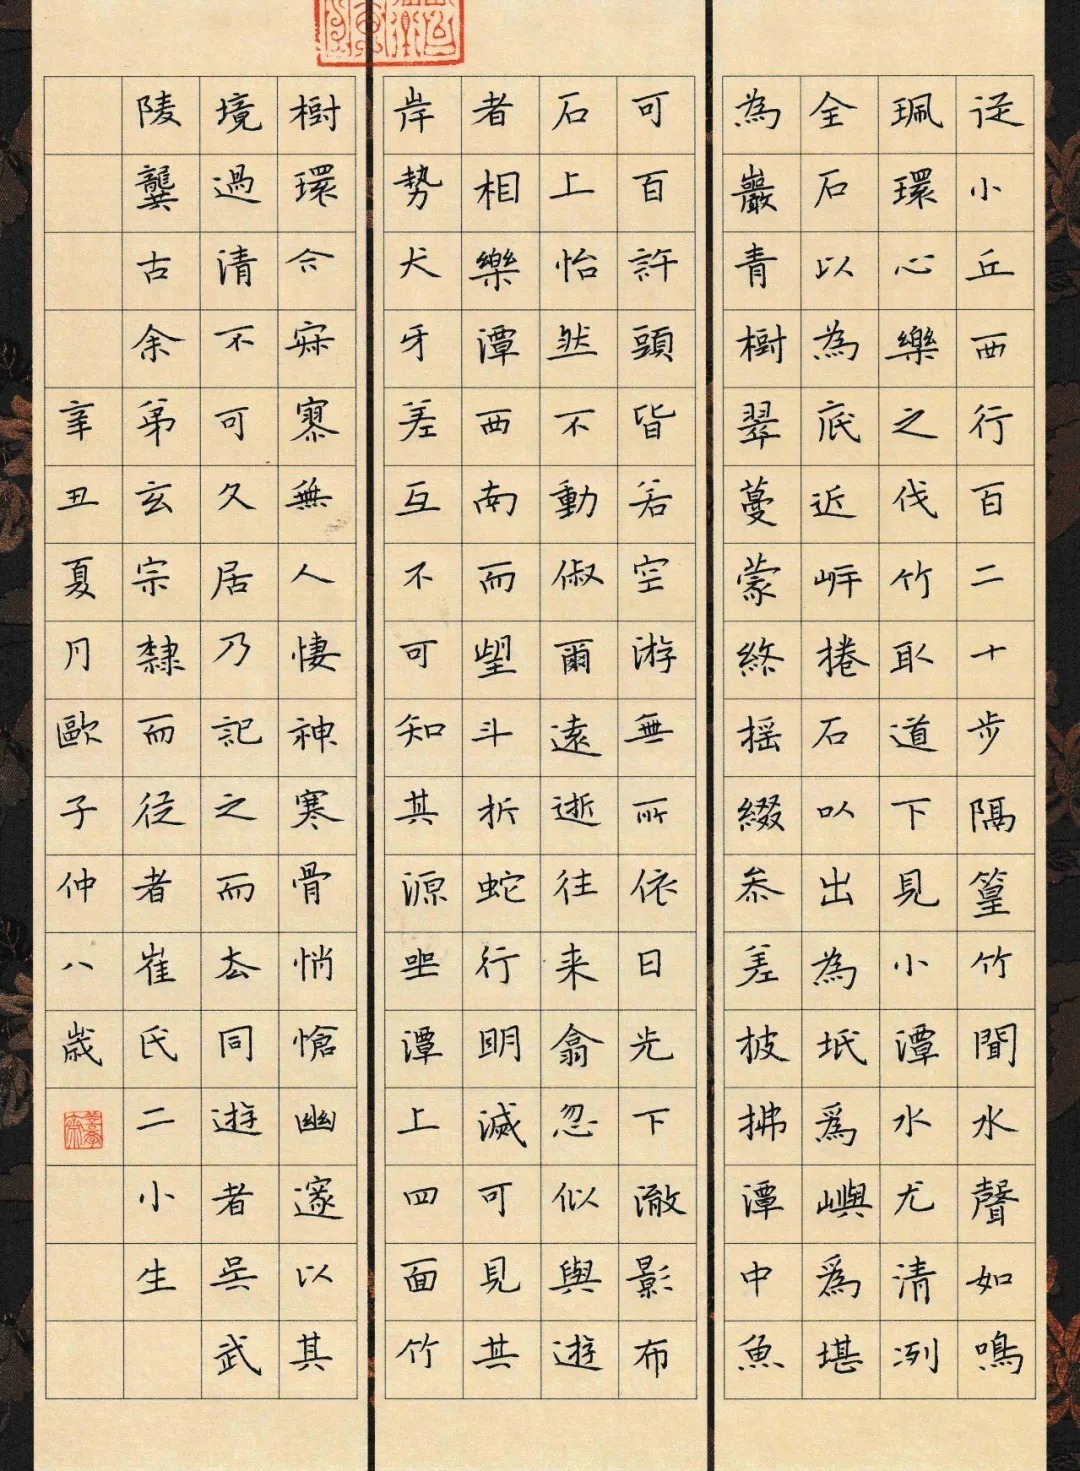 從小丘西行百二十步隔篁竹聞水聲如鳴
珮環心樂之伐竹取道下見小潭水尤清冽
全石以為底近岸捲石以出為坻爲嶼爲堪
為巖青樹翠蔓蒙絡搖綴參差披拂潭中魚
可百許頭皆若空游無所依日光下澈影布
石上怡然不動俶爾遠逝往来翕忽似與遊
者相樂潭西南而望斗折蛇行明滅可見其
岸勢犬牙差互不可知其源坐潭上四面竹
樹環合寂寥無人悽神寒骨悄愴幽邃以其
境過清不可久居乃記之而去同遊者吳武
陵龔古余弟玄宗隸而從者崔氏二小生
辛丑夏月歐子仲八歲